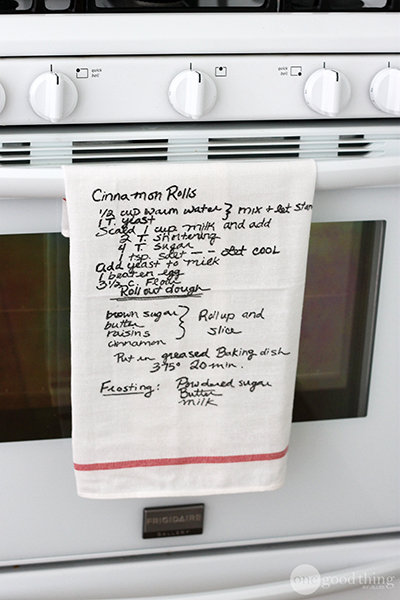 Cinnamon Rolls
1/2 cup warm water } mix + let stand
1 T. yeast
Scald 1 cup milk and add
2 T. shortening
4 T. sugar
1 tsp. salt -- Let COOL
Add yeast to milk
1 beaten egg
3 1/2 c. Flour
Roll out dough
brown sugar
butter
raisins
cinnamon
} Roll up and
slice
Put in greased Baking dish
375° 20 min.
Frosting: Powdered sugar
Butter
milk
FRIGIDAIRE
GALLERY
one good thing